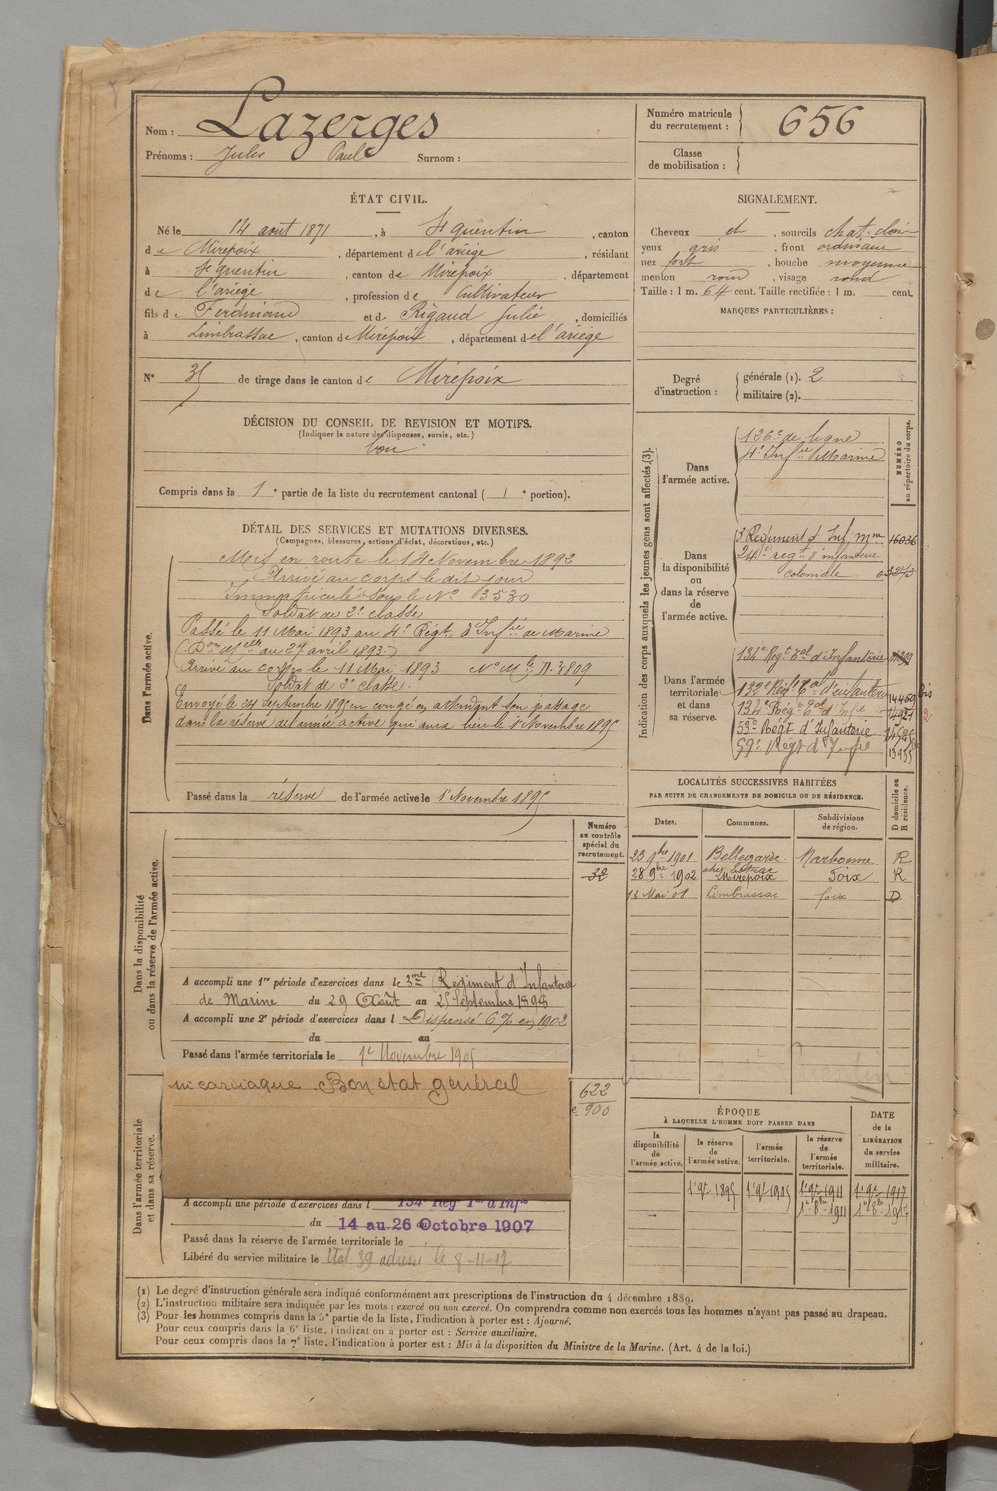 Nom : Lazerges
Prénoms : Jules Paul Surnom :
Numéro matricule du recrutement : 656
Classe de mobilisation :
ÉTAT CIVIL.
Né le 14 août 1871, à St quentin, canton
de Mirepoix, département de l'ariège, résidant
à St quentin, canton de Mirepoix, département
de l'ariège, profession de Cultivateur
fils de Ferdinand et de Rigaud Julie, domiciliés
à Limbrassac, canton de Mirepoix, département de l'ariège
N° 35 de tirage dans le canton de Mirepoix
SIGNALEMENT.
Cheveux et, sourcils chat. clair
yeux gris, front ordinaire
nez fort, bouche moyenne
menton rond, visage rond
Taille : 1 m. 64 cent. Taille rectifiée : 1 m. cent.
MARQUES PARTICULIÈRES :
Degré d'instruction : générale (1). 2
militaire (2).
DÉCISION DU CONSEIL DE REVISION ET MOTIFS.
(Indiquer la nature des dispenses, sursis, etc.)
bon
Compris dans la 1e partie de la liste du recrutement cantonal (1e portion).
DÉTAIL DES SERVICES ET MUTATIONS DIVERSES.
(Campagnes, blessures, actions d'éclat, décorations, etc.)
Dans l'armée active.
Mis en route le 14 Novembre 1892
Arrivé au corps le dit jour
Immatriculé sous le N° 3530
Soldat de 2e classe
Passé le 11 Mai 1893 au 4e Régt d'Infie de Marine
(Don Mlle au 27 avril 1893)
Arrivé au corps le 11 Mai 1893 N° Mle D.3809
Soldat de 2e classe.
Envoyé le 24 Septembre 1895 en congé en attendant son passage
dans la réserve de l'armée active qui aura lieu le 1er Novembre 1895
Passé dans la réserve de l'armée active le 1er Novembre 1895
Indication des corps auxquels les jeunes gens sont affectés (3).
NUMÉRO au répertoire du corps.
Dans l'armée active.
136e de ligne
4e Infie Marine
Dans la disponibilité ou dans la réserve de l'armée active.
3 Régiment d'Inf. Mne 16036
24e regt d'infanterie
coloniale
Dans l'armée territoriale et dans sa réserve.
134e Régt Tal d'Infanterie
132e Régt Tal d'Infanterie
134e Régt Tal d'Infie
53e Régt d'Infanterie
59e Régt d'Infie
LOCALITÉS SUCCESSIVES HABITÉES
PAR SUITE DE CHANGEMENTS DE DOMICILE OU DE RÉSIDENCE.
Dates. Communes. Subdivisions de région. D domicile ou R résidence.
23 9bre 1901 Bellegarde Narbonne R
28 9bre 1902 Mirepoix Foix R
12 Mai 08 Limbrassac foix D
Numéro au contrôle spécial du recrutement.
32
Dans la disponibilité ou dans la réserve de l'armée active.
A accompli une 1re période d'exercices dans le 3me Régiment d'Infanterie
de Marine du 29 Août au 25 Septembre 1898
A accompli une 2e période d'exercices dans l Dispensé 6% en 1902
du au
Passé dans l'armée territoriale le 1er Novembre 1905
Dans l'armée territoriale et dans sa réserve.
Bon état général
622
900
A accompli une période d'exercices dans l 134e Régt Tal d'Infie
du 14 au 26 Octobre 1907
Passé dans la réserve de l'armée territoriale le
Libéré du service militaire le Etat 39 adressé le 8-11-17
ÉPOQUE
À LAQUELLE L'HOMME DOIT PASSER DANS
DATE de la LIBÉRATION du service militaire.
la disponibilité de l'armée active. la réserve de l'armée active. l'armée territoriale. la réserve de l'armée territoriale.
1er 9bre 1895 1er 9bre 1905 1er 9bre 1911 1er 9bre 1917
1er 8bre 1911 1er 8bre 1917
(1) Le degré d'instruction générale sera indiqué conformément aux prescriptions de l'instruction du 4 décembre 1889.
(2) L'instruction militaire sera indiquée par les mots : exercé ou non exercé. On comprendra comme non exercés tous les hommes n'ayant pas passé au drapeau.
(3) Pour les hommes compris dans la 5e partie de la liste, l'indication à porter est : Ajourné.
Pour ceux compris dans la 6e liste, l'indication à porter est : Service auxiliaire.
Pour ceux compris dans la 7e liste, l'indication à porter est : Mis à la disposition du Ministre de la Marine. (Art. 4 de la loi.)